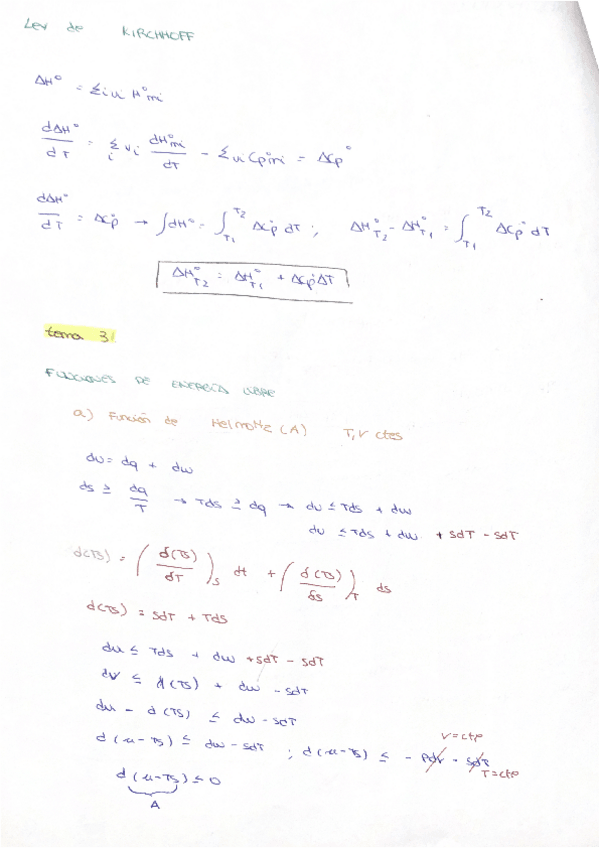 Ley de KIRCHHOFF
ΔH° = Σi νi H°mi
dΔH°/dT = Σi νi dH°mi/dT - Σ νi Cp°mi = ΔCp°
dΔH°/dT = ΔCp° → ∫dH° = ∫T1 T2 ΔCp° dT ; ΔH°T2 - ΔH°T1 = ∫T1 T2 ΔCp° dT
ΔH°T2 = ΔH°T1 + ΔCp° ΔT
tema 3
FUNCIONES DE ENERGÍA LIBRE
a) Función de Helmoltz (A) T,V ctes
du = dq + dw
ds ≥ dq/T → Tds ≥ dq → du ≤ Tds + dw
du ≤ Tds + dw + SdT - SdT
d(TS) = (δ(TS)/δT)S dt + (δ(TS)/δS)T ds
d(TS) = SdT + Tds
du ≤ Tds + dw + SdT - SdT
dU ≤ d(TS) + dw - SdT
du - d(TS) ≤ dw - SdT
V=cte
d(u-TS) ≤ dw - SdT ; d(u-TS) ≤ - PdV - SdT
T=cte
d(u-TS) ≤ 0
A